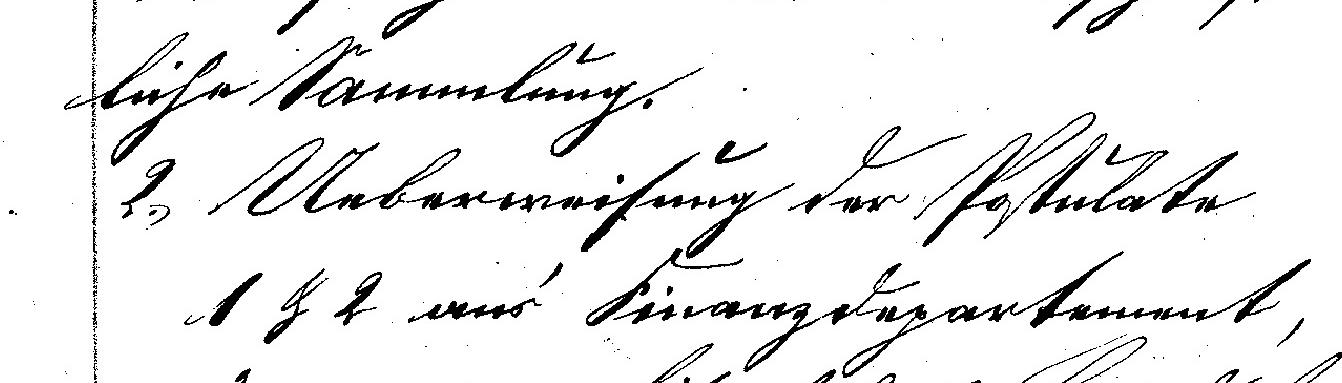 liche Sammlung.
2. Ueberweisung der Postulate
1 & 2 ans Finanzdepartement,